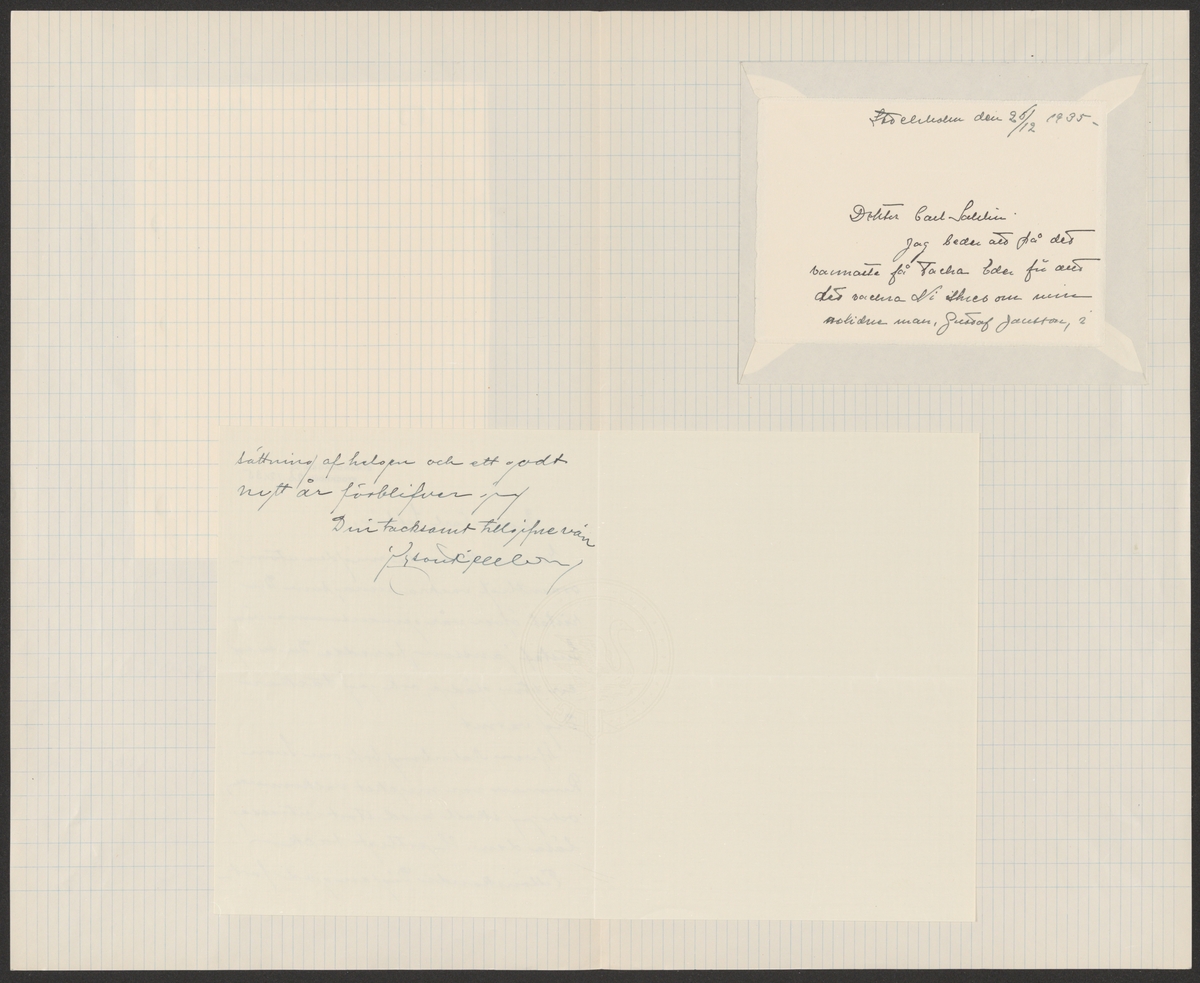 Stockholm den 26/12 1935 -
Doktor Carl Sahlin.
Jag beder att på det
varmaste få tacka Eder för allt
det vackra Ni skrev om min
man, Gustaf Jansson, i
sättning af helgen och ett godt
nytt år förblifver jag
Din tacksamt tillgifne vän